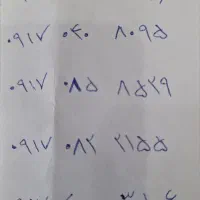 ۰۹۱۷ ۰۴۰ ۸۰۹۵
۰۹۱۷ ۰۸۵ ۸۵۲۹
۰۹۱۷ ۰۸۲ ۲۱۵۵